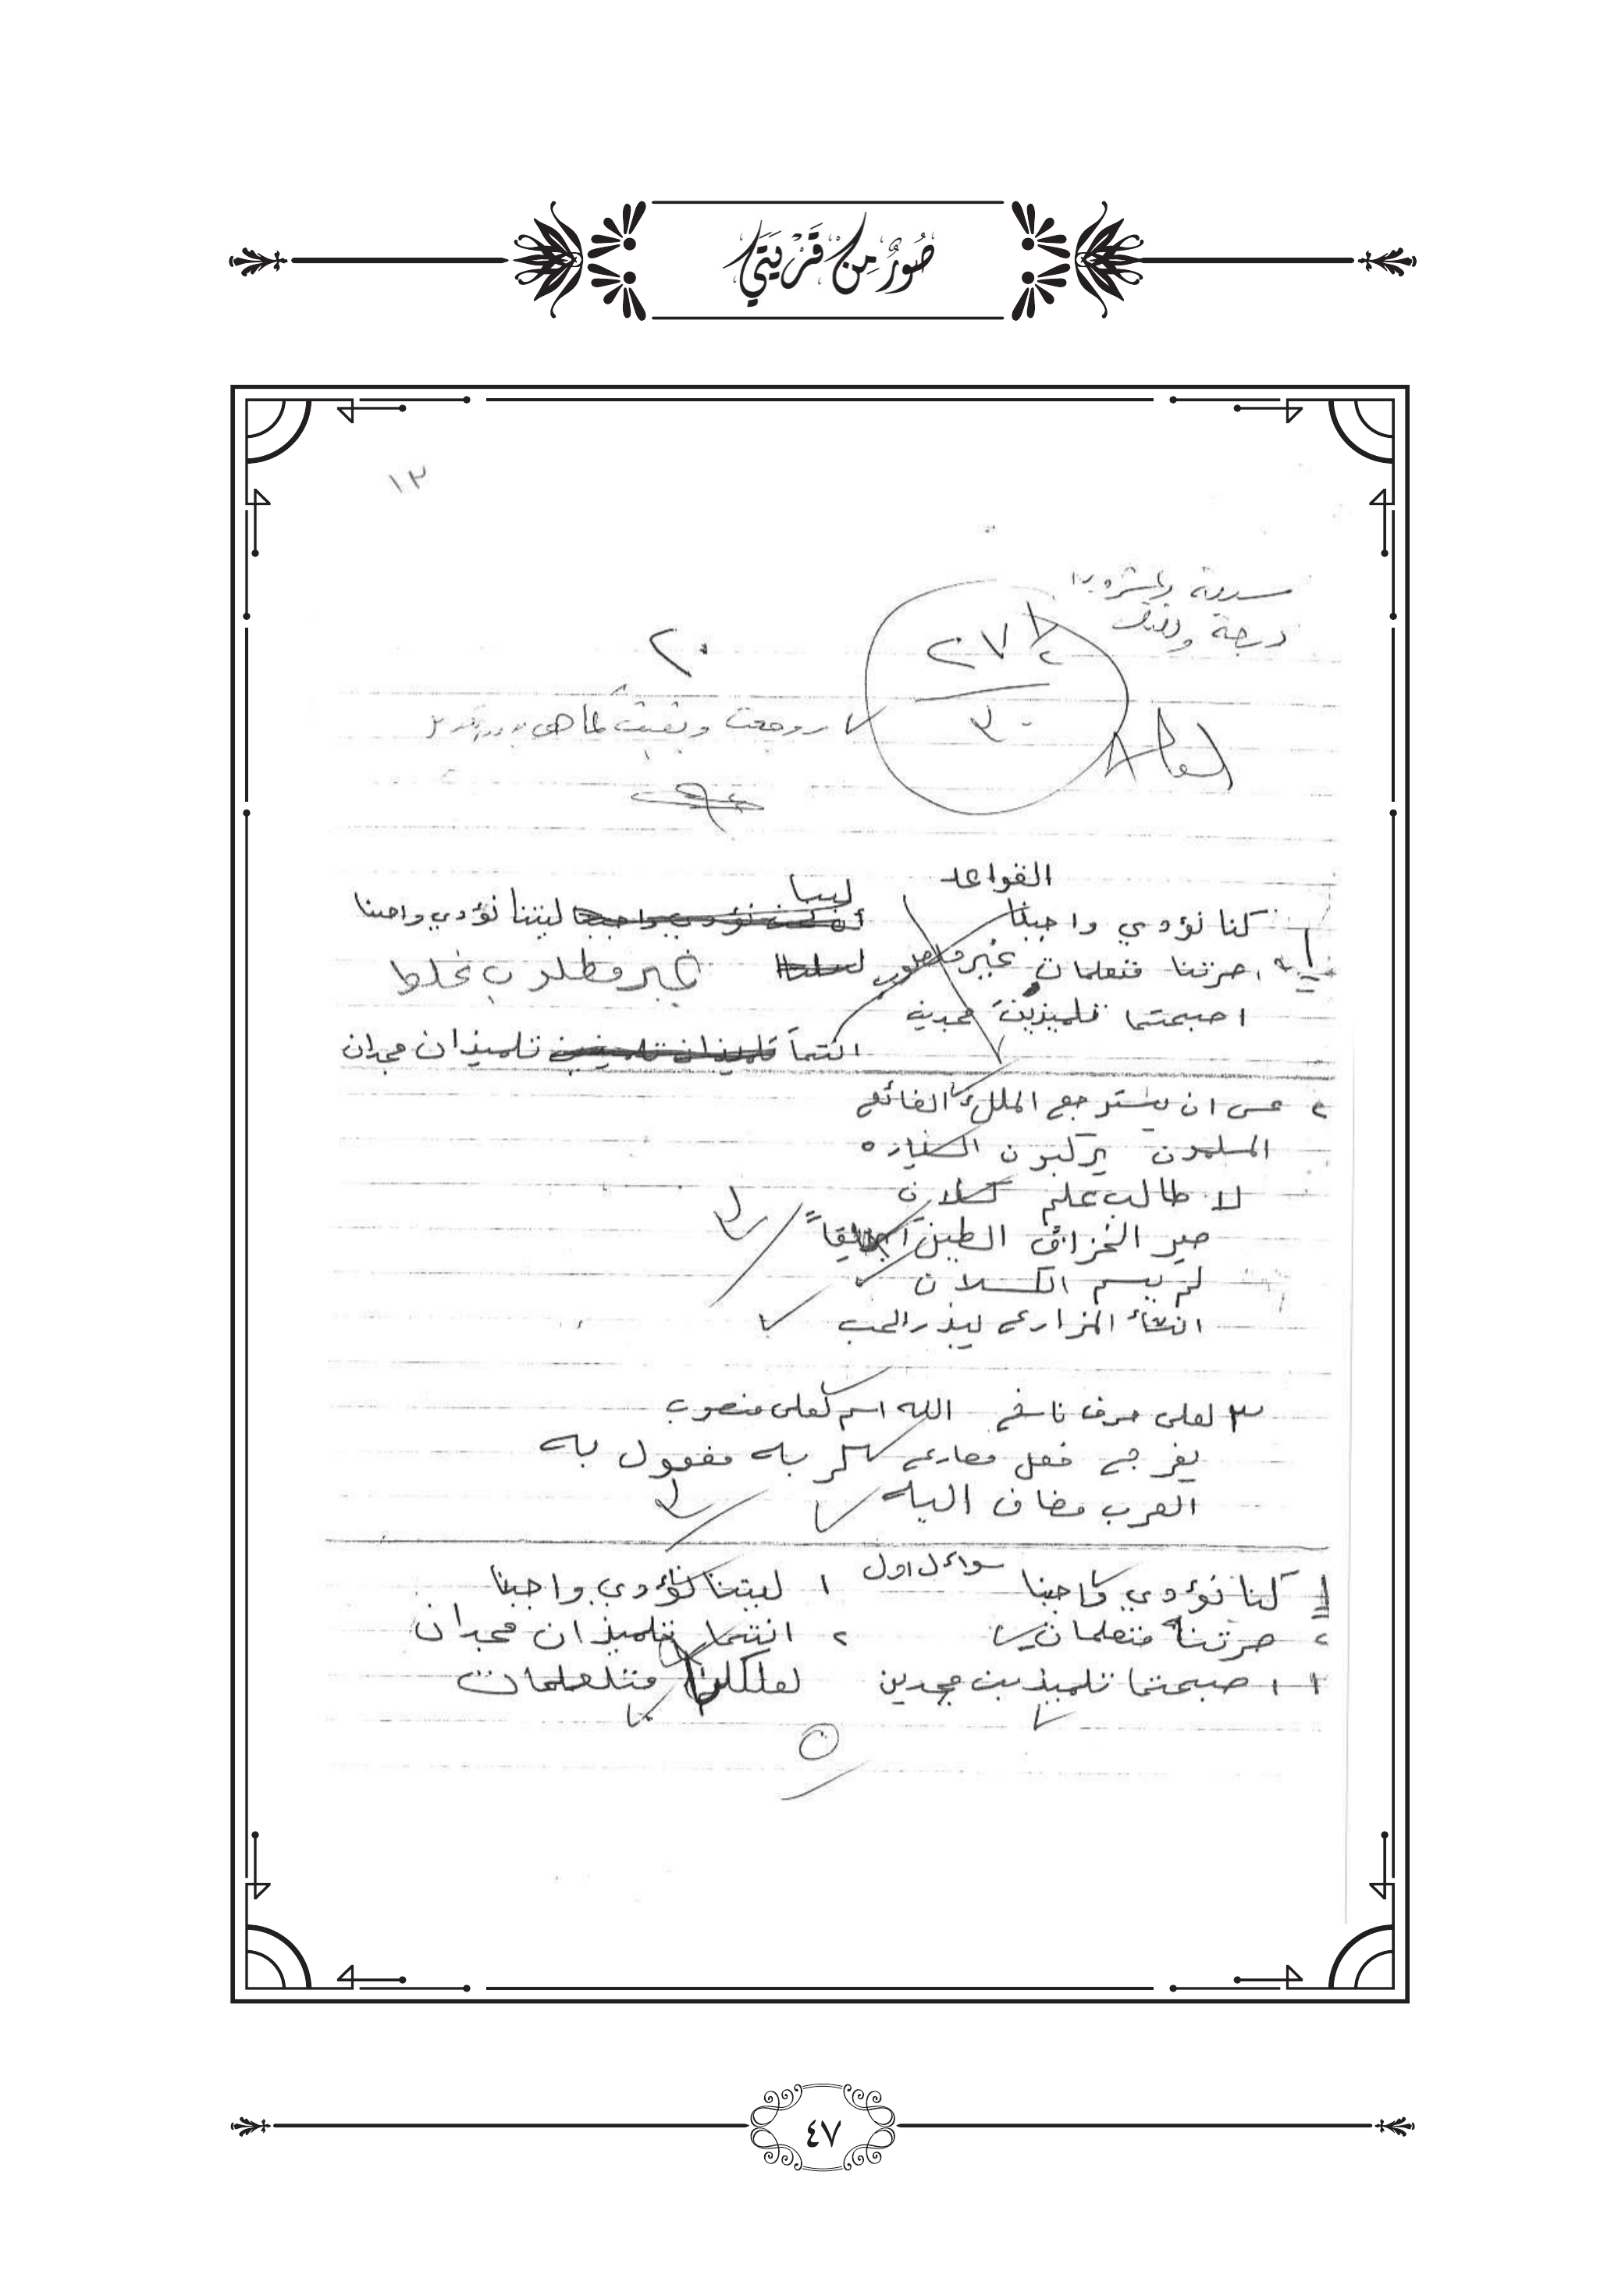 صُوَرٌ مِنْ قَرْيَتِي
١٣
سبعة وعشرون
درجة ونصف
٢٧ ١/٢
٣٠
٢٠
روجعت وبقيت كما هي
القواعد
كنا نؤدي واجبنا ليتنا نؤدي واجبنا
صرتنا متعلمات غير مطلوب غير مطلوب غلط
اصبحتما تلميذين مجدين
انتما تلميذان مجدان
٢ عسى ان يسترجع الملك الضائع
المسلمون يركبون السياره
لا طالب علم كسلان
صير الخزاف الطين ابريقاً
لم يسم الكسلان
انشأ المزارع ليبذر الحب
٣
٣ لعل حرف ناسخ الله اسم لعل منصوب
يفرج فعل مضارع كربه مفعول به
العرب مضاف اليه
٣
سوائل اول
١ كنا نؤدي واجبنا ١ ليتنا نؤدي واجبنا
٢ صرتنا متعلمات ٢ انتما تلميذان مجدان
اصبحتما تلميذين مجدين لعلكن متعلمات
٥
٤٧